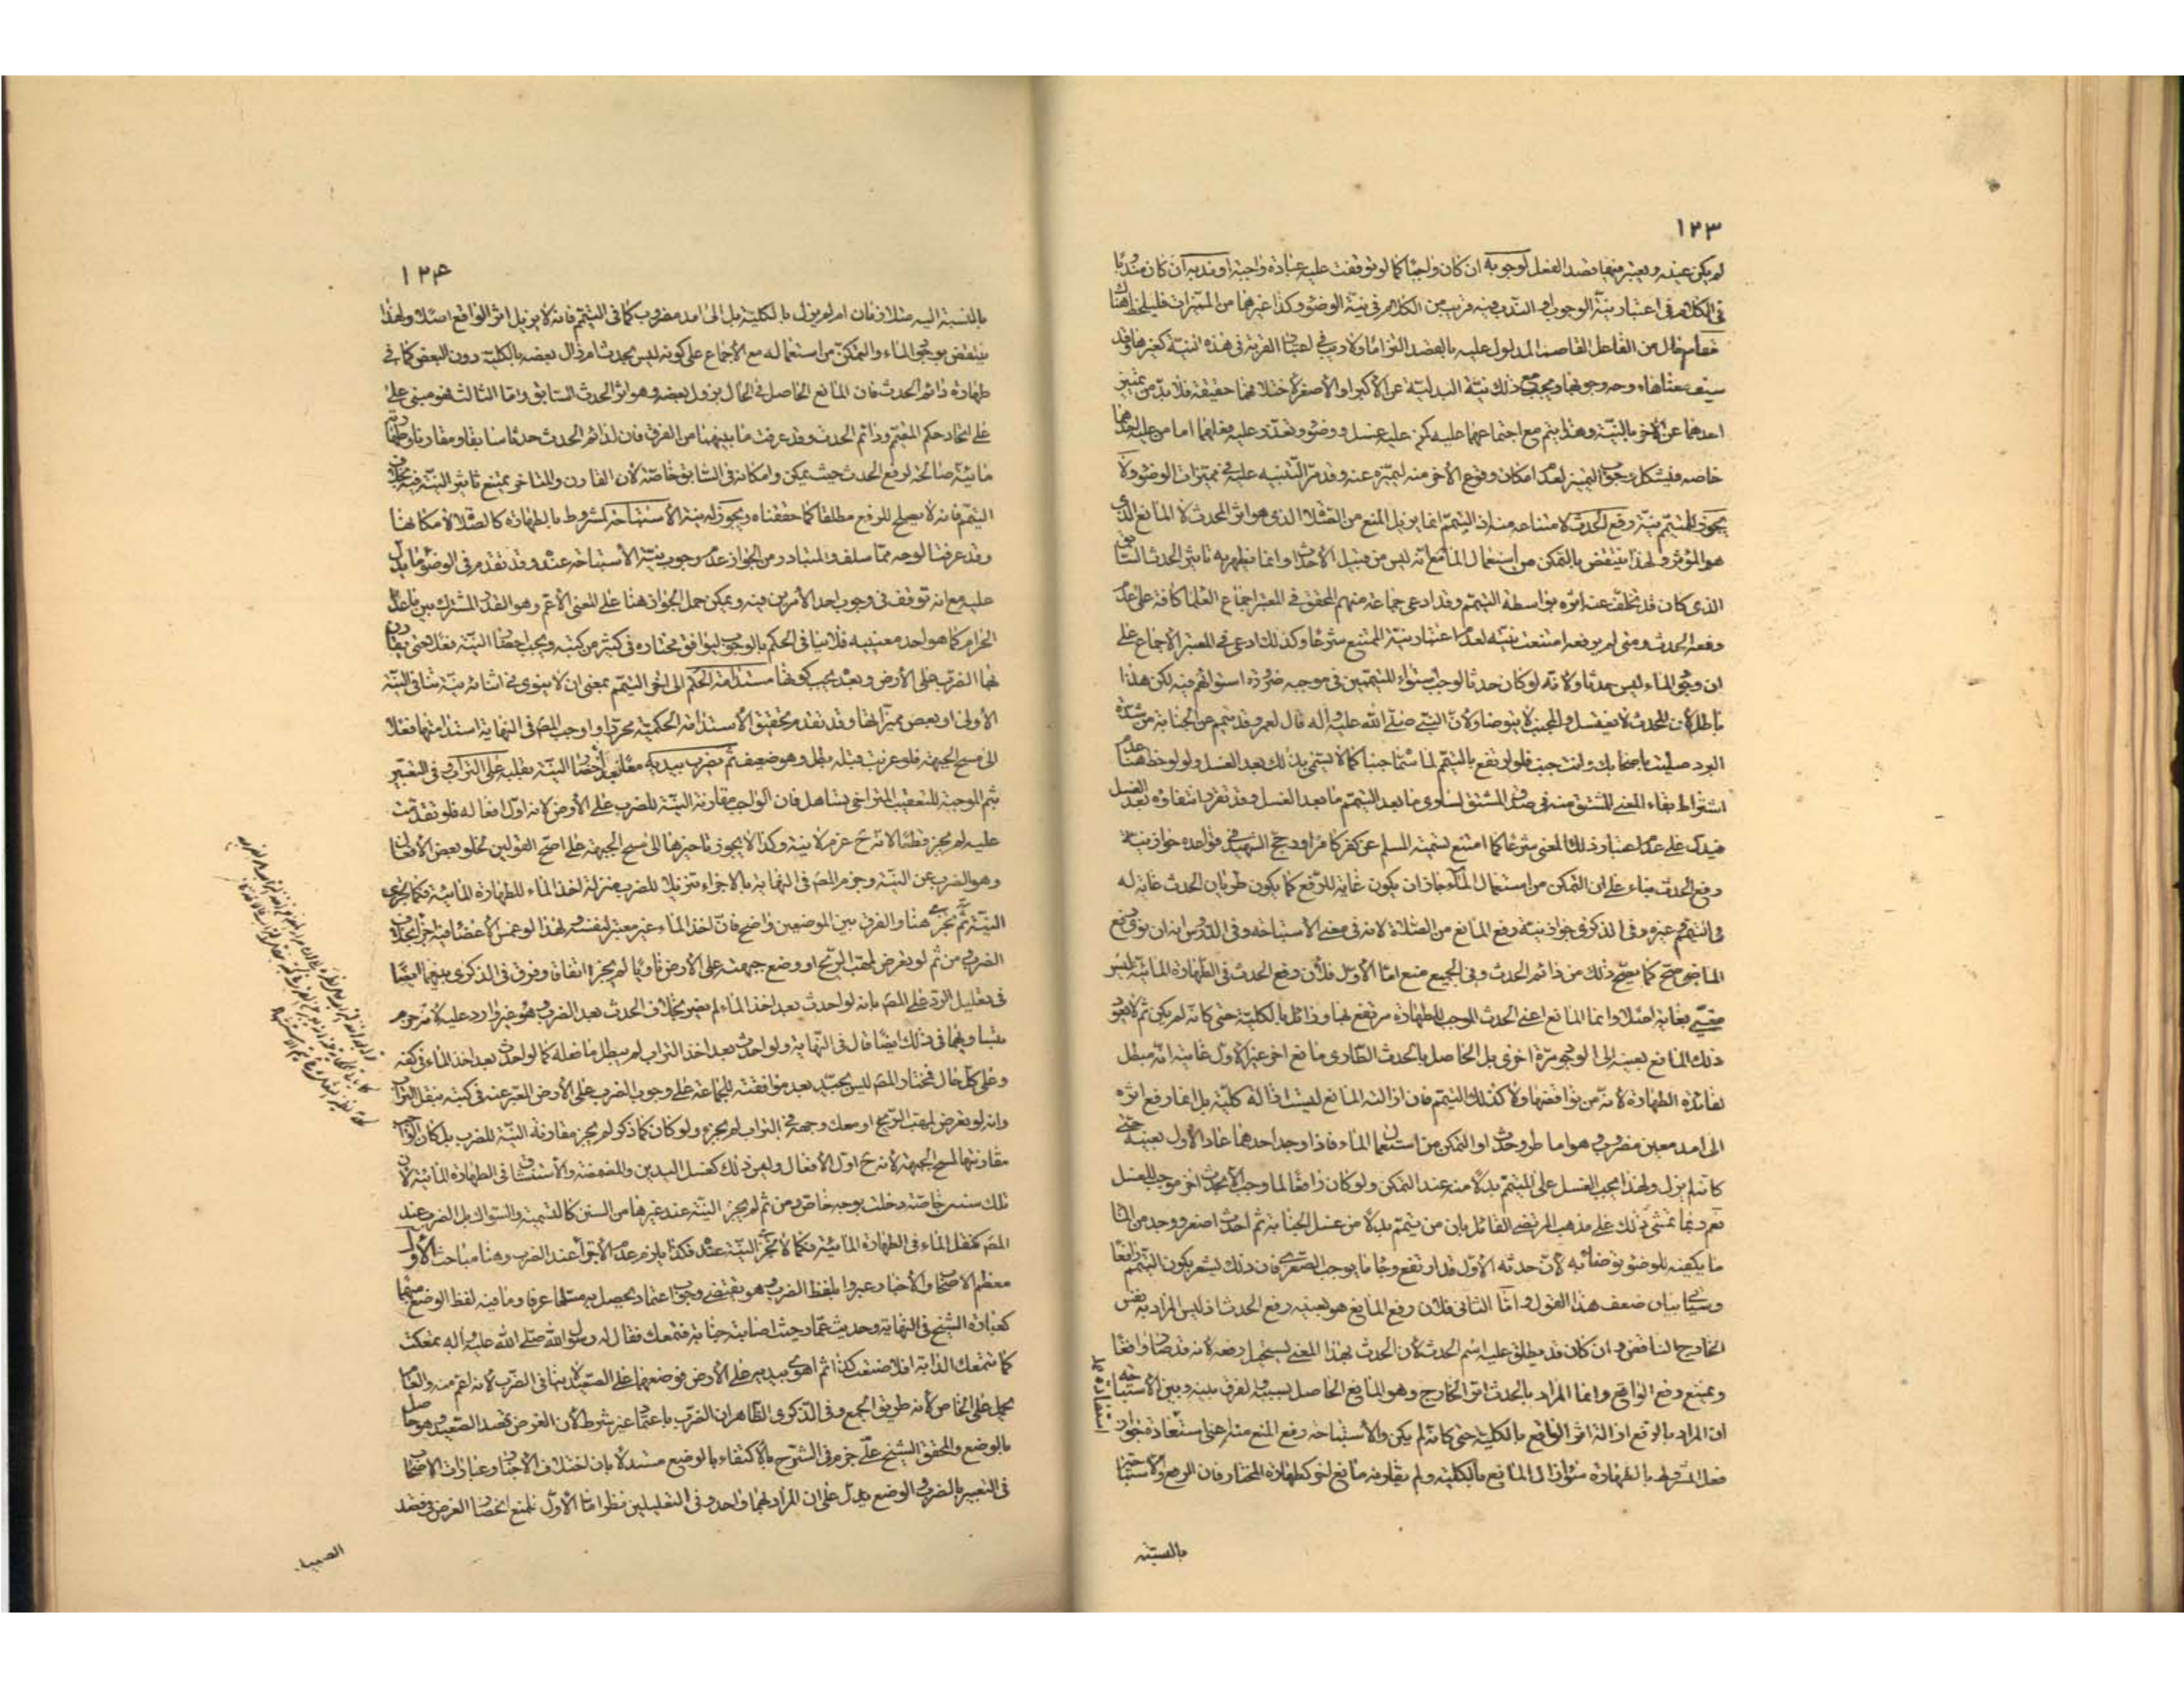 ١٢٣
لم يكن عينه ويعتبر فيها قصد الفعل لوجوبه ان كان واجبا كما لو توقفت عليه عبادة واجبة او ندبه ان كان مندوبا
فى الكلام فى اعتبار نية الوجوب او الندب فيه قريب من الكلام فى نية الوضوء وكذا غيرهما من المميزات فليلحظ هناك
حال من الفاعل القاصد المدلول عليه بالقصد التزاما ولا ريب فى اعتبار القربة فى هذه النية كغيرها وقد
سبق معناها ووجه وجوبها ويجب مع ذلك نية البدلية عن الاكبر او الاصغر لاختلافهما حقيقة فلا بد من تمييز
احدهما عن الاخر بالنية وهذا يتم مع اجتماعهما عليه كمن عليه غسل ووضوء وتعذر عليه فعلهما اما من عليه احدهما
خاصه فيشكل وجوب التمييز لعدم امكان وقوع الاخر منه ليميزه عنه وقد مر التنبيه عليه فى مميزات الوضوء ولا
يجوز للمتيمم نية رفع الحدث لامتناعه منه اذ التيمم انما يزيل المنع من الصلاة الذى هو اثر الحدث لا المانع الذى
هو المؤثر ولهذا ينتقض بالتمكن من استعمال الماء مع انه ليس من قبيل الاحداث وانما يظهر به تاثير الحدث السابق
الذى كان قد تخلف عنه اثره بواسطة التيمم وقد ادعى جماعة منهم المحقق فى المعتبر اجماع العلماء كافة على عدم
رفعه الحدث ومتى لم يرفعه امتنعت نيته لعدم اعتبار نية الممتنع شرعا وكذلك ادعى فى المعتبر الاجماع على
ان وجود الماء ليس حدثا ولانه لو كان حدثا لوجب استواء المتيممين فى موجبه ضرورة استوائهم فيه لكن هذا
باطل لان المحدث لا يغتسل والمجنب لا يتوضا ولان النبى صلى الله عليه واله قال لعمرو وقد تيمم عن الجنابة من شدة
البرد صليت باصحابك وانت جنب فلو ارتفع بالتيمم لما سماه جنبا كما لا يسمى بذلك بعد الغسل ولو لوحظ هنا عدم
اشتراط بقاء المعنى المشتق منه فى صدق المشتق لساوى ما بعد التيمم ما بعد الغسل وقد تقرر انتفاؤه بعد الغسل
فيدل على عدم اعتبار ذلك المعنى شرعا كما امتنع تسمية المسلم عن كفر كافرا ورجح الشهيد فى قواعده جواز نية
رفع الحدث بناء على ان التمكن من استعمال الماء جاز ان يكون غاية للرفع كما يكون طريان الحدث غاية له
فى التيمم وغيره وفى الذكرى جواز نية رفع المانع من الصلاة لانه فى معنى الاستباحه وفى الدروس انه ان نوى رفع
الماضى صح كما يصح ذلك من دائم الحدث وفى الجميع منع اما الاول فلان رفع الحدث فى الطهارة المائية ليس
مغيى بغاية اصلا وانما المانع اعنى الحدث الموجب للطهارة مرتفع بها وزائل بالكلية حتى كانه لم يكن ثم لا يعود
ذلك المانع بعينه الى الوجود مرة اخرى بل الحاصل بالحدث الطارى مانع اخر غير الاول غايته انه مبطل
لفائدة الطهارة لانه من نواقضها ولا كذلك التيمم فان ازالته المانع ليست ازالة كلية بل انما رفع اثره
الى امد معين مضروب هو اما طرو حدث او التمكن من استعمال الماء فاذا وجد احدهما عاد الاول بعينه حتى
كانه لم يزل ولهذا يجب الغسل على المتيمم بدلا منه عند التمكن ولو كان رافعا لما وجب الا بحدث اخر موجب للغسل
نعم ربما تمشى ذلك على مذهب المرتضى القائل بان من تيمم بدلا من غسل الجنابة ثم احدث اصغر ووجد من الماء
ما يكفيه للوضوء توضا به لان حدثه الاول قد ارتفع وجاء ما يوجب الصغرى فان ذلك يشعر بكون التيمم رافعا
وسياتى بيان ضعف هذا القول واما الثانى فلان رفع المانع هو بعينه رفع الحدث اذ ليس المراد به نفس
الخارج الناقض وان كان قد يطلق عليه اسم الحدث لان الحدث بهذا المعنى يستحيل رفعه لانه قد صار واقعا
ويمتنع رفع الواقع وانما المراد بالحدث اثر الخارج وهو المانع الحاصل بسببه والفرق بينه وبين الاستباحه
ان المراد بالرفع ازالة اثر الواقع بالكلية حتى كانه لم يكن والاستباحه رفع المنع منه اعنى استفادة جواز
فعل المشروط بالطهارة سواء زال المانع بالكلية ولم يقارنه مانع اخر كطهارة المختار فان الرفع والاستباحة
بالنسبة
١٢٤
بالنسبة اليه متلازمان ام لم يزل بالكلية بل الى امد مضروب كما فى التيمم فانه لا يزيل اثر الواقع اصلا ولهذا
ينتقض بوجود الماء والتمكن من استعماله مع الاجماع على كونه ليس بحدث ام زال بعضه بالكلية دون البعض كما فى
طهارة دائم الحدث فان المانع الحاصل فى الحال يزول بعضه وهو اثر الحدث السابق واما الثالث فهو مبنى على
على اتحاد حكم المتيمم ودائم الحدث وقد عرفت ما بينهما من الفرق فان لدائم الحدث حدثا سابقا ومقارنا وطهارته
مائية صالحة لرفع الحدث حيث يمكن وامكانه فى السابق خاصة لان المقارن والمتاخر يمتنع تاثير النية فيه بخلاف
التيمم فانه لا يصلح للرفع مطلقا كما حققناه ويجوز له نية الاستباحة لمشروط بالطهارة كالصلاة لامكانها
وقد عرفت الوجه مما سلف والمتبادر من الجواز عدم وجوب نية الاستباحه عنده وقد تقدم فى الوضوء ما يدل
عليه مع انه توقف فى وجوب احد الامرين فيه ويمكن حمل الجواز هنا على المعنى الاعم وهو القدر المشترك بين ما عدا
الحرام كما هو احد معنييه فلا ينافى الحكم بالوجوب ليوافق مختاره فى كثير من كتبه ويجب ايضا النية فعلا حتى يقارن
بها الضرب على الارض وبعده يجب كونها مستدامة الحكم الى اخر التيمم بمعنى ان لا ينوى فى اثنائه نية تنافى النية
الاولى او بعض مميزاتها وقد تقدم تحقيق الاستدامة الحكمية محررا واوجب المص فى النهاية استدامتها فعلا
الى مسح الجبهة فلو عزبت قبله بطل وهو ضعيف ثم يضرب بيديه معا بعد احضار النية بقلبه على التراب وفى التعبير
بثم الموجبة للتعقيب المتراخى تساهل فان الواجب مقارنة النية للضرب على الارض لانه اول افعاله فلو تقدمت
عليه لم يجز قطعا لانه ح عزم لا نية وكذا لا يجوز تاخيرها الى مسح الجبهة على اصح القولين لخلو بعض الافعال
وهو الضرب عن النية وجزم المص فى النهاية بالاجزاء تنزيلا للضرب منزلة اخذ الماء للطهارة المائية فكما يجزى
النية ثم تجزى هنا والفرق بين الموضعين واضح فان اخذ الماء غير معتبر لنفسه ولهذا لو غمس الاعضاء فيه اجزا بخلاف
الضرب ومن ثم لو تعرض لمهب الريح او وضع جبهته على الارض ناويا لم يجزه اتفاقا وفرق فى الذكرى بينهما ايضا
فى تعليل الرد على المص بانه لو احدث بعد اخذ الماء لم يضر بخلاف الحدث بعد الضرب وهو غير وارد عليه لانه جزم
بتساويهما فى ذلك ايضا قال فى النهاية ولو احدث بعد اخذ التراب لم يبطل ما فعله كما لو احدث بعد اخذ الماء فى كفه
وعلى كل حال فمختار المص ليس بجيد بعد موافقته للجماعة على وجوب الضرب على الارض المعبر عنه فى كتبه بنقل التراب
وانه لو تعرض لمهب الريح او معك وجهه فى التراب لم يجزه ولو كان كما ذكر لم يجز مقارنة النية للضرب بل كان الواجب
مقارنتها لمسح الجبهة لانه ح اول الافعال وليس ذلك كغسل اليدين والمضمضة والاستنشاق فى الطهارة المائية لان
تلك سنن خاصة دخلت بوجه خاص ومن ثم لم يجز النية عند غيرها من السنن كالتسمية والسواك بل الضرب عند
المص كنقل الماء فى الطهارة المائية فكما لا تجزى النية عنده فكذا يلزم عدم الاجزاء عند الضرب وهنا مباحث الاول
معظم الاصحاب والاخبار عبروا بلفظ الضرب وهو يقتضى وجوب اعتماد يحصل به مسماه عرفا وما فيه لفظ الوضع منهما
كعبارة الشيخ فى النهاية وحديث عمار حيث اصابته جنابة فتمعك فقال له رسول الله صلى الله عليه واله تمعكت
كما تتمعك الدابة افلا صنعت كذا ثم اهوى بيديه على الارض فوضعهما على الصعيد لا ينافى الضرب لانه اعم منه والعام
يحمل على الخاص لانه طريق الجمع وفى الذكرى الظاهر ان الضرب باعتماد غير شرط لان الغرض قصد الصعيد وهو حاصل
بالوضع والمحقق الشيخ على جزم فى الشرح بالاكتفاء بالوضع مستدلا بان اختلاف الاخبار وعبارات الاصحاب
فى التعبير بالضرب والوضع يدل على ان المراد بهما واحد وفى التعليلين نظر اما الاول فلمنع انحصار الغرض فى قصد
الصعيد